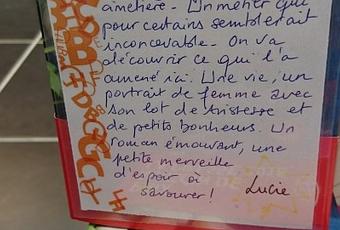 cimetière. Un métier qui
pour certains semblerait
inconcevable. On va
découvrir ce qui l'a
amené ici. Une vie, un
portrait de femme avec
son lot de tristesse et
de petits bonheurs. Un
roman émouvant, une
petite merveille
d'espoir à
savourer !
Lucie